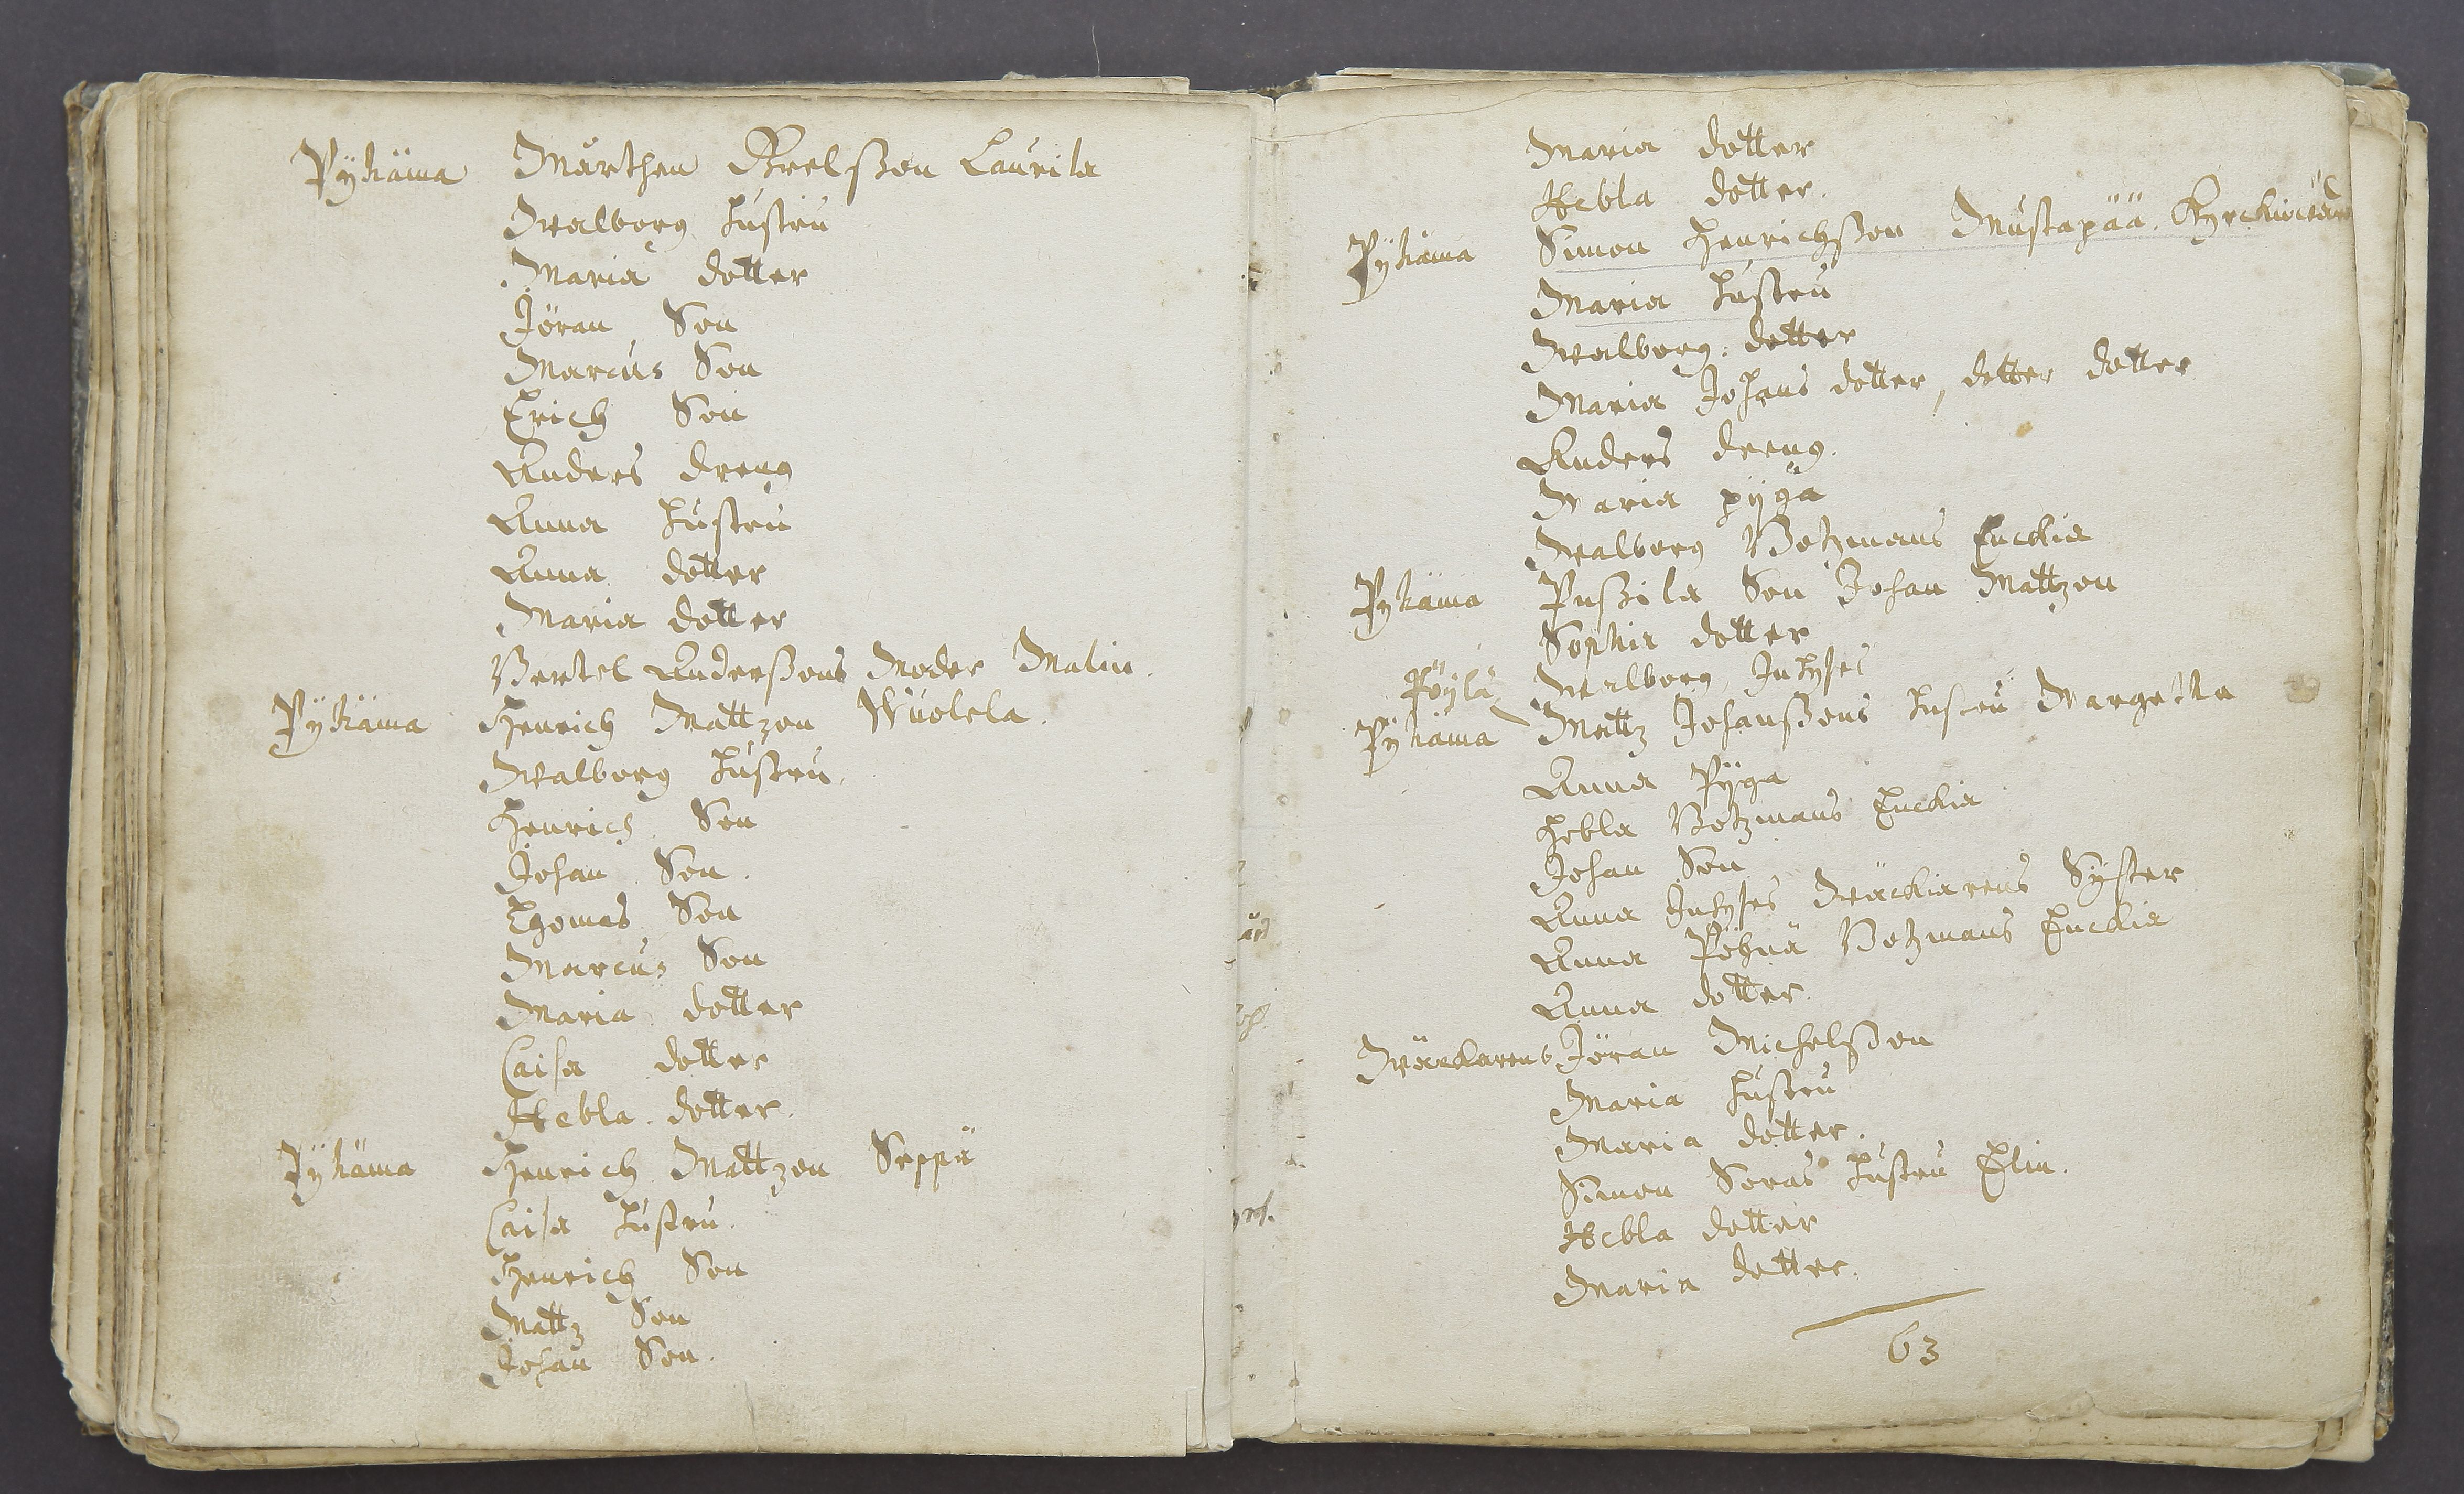 Pÿhäma Mårthen Grelsson Laurila
Walborg hustru
Maria dotter
Jöran Son
Marcus Son
Erich Son
Anders dreng
Anna hustru
Anna dotter
Maria dotter
Bertel Anderssons Moder Malin.
Pÿhäma Henrich Mattzon Wuolela.
Walborg hustru
Henrich Son
Johan Son.
Thomas Son
Marcus Son
Maria dotter
Caisa dotter
Hebla dotter.
Pÿhäma Henrich Mattzon Seppä
Caisa hustru.
Henrich Son
Mattz Son
Johan Son.
Maria dotter
Hebla dotter.
Pÿhäma Simon Henrichsson Mustapää. Kyrckiowärd
Maria hustru
Walborg dotter
Maria Johans dotter, dotter dotter
Anders dreng.
Maria pÿga
Walborg Botzmans Enckia
Pyhäma Pussila Son Johan Mattzon
Sophia dotter
Pöÿlä Walborg Inhyses
Pÿhäma Mattz Johanssons hustru Margetta
Anna Pÿga
Hebla Botzmans Enckia
Johan Son
Anna Inhyses Wäckiarens Syster
Anna Pöhnä Botzmans Enckia
Anna dotter.
Wäckarens Jöran Michelsson
Maria hustru
Maria dotter.
Simon Soras hustru Elin.
Hebla dotter
Maria dotter.
63